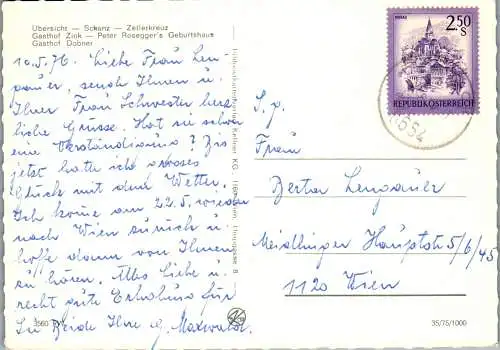 Übersicht — Schanz — Zellerkreuz
Gasthof Zink — Peter Rosegger's Geburtshaus
Gasthof Dobner
10.5.76. Liebe Frau Len-
gauer, sende Ihnen u.
Ihrer Frau Schwester herz
liche Grüsse. Hat sie schon
eine Verständigung? Bis
jetzt hatte ich grosses
Glück mit dem Wetter.
Ich kome am 22.5. wieder
nach Wien zurück u.
hoffe dann von Ihnen
zu hören. Alles Liebe u.
recht gute Erholung für
Sie Beide Ihre G. Maxwald.
KG.
8
MURAU
2.50
S
REPUBLIK ÖSTERREICH
8654
S. g.
Frau
Berta Lengauer
Meidlinger Hauptstr 5/6/45
1120 Wien
3560
35/75/1000